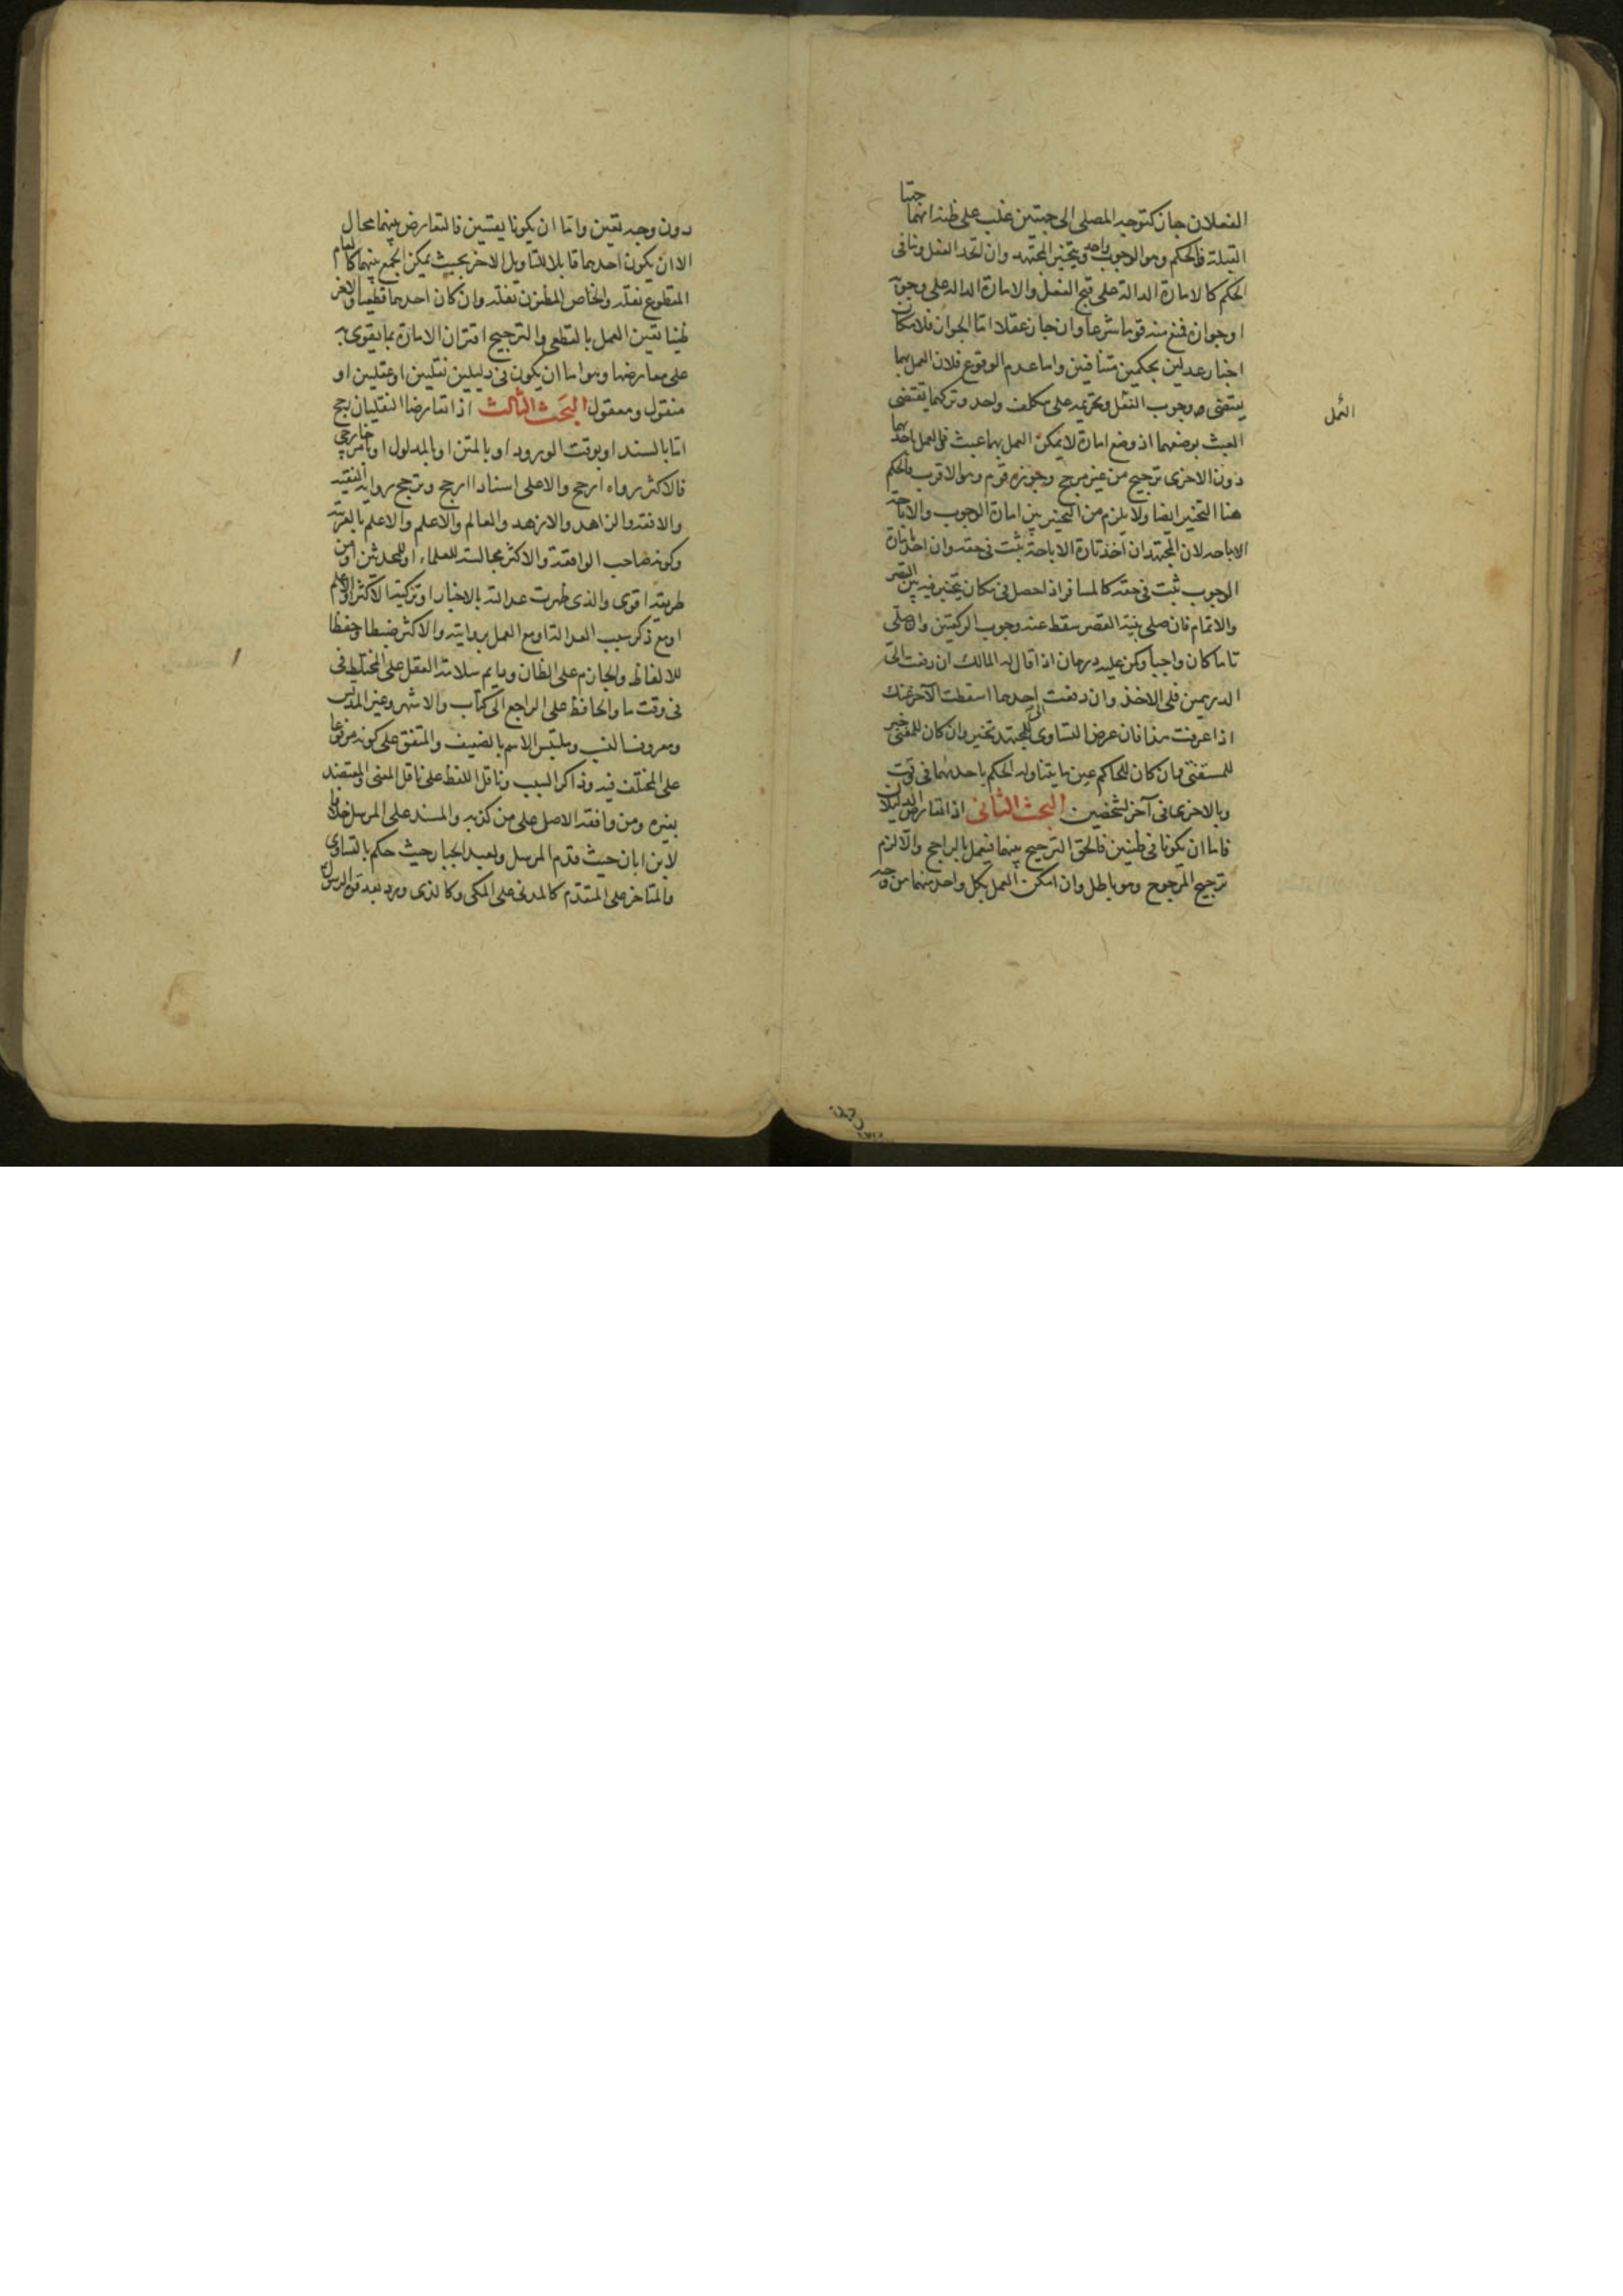 الفعلان جاز كتوجه المصلى الى جهتين غلب على ظنه انهما جهتا
القبلة فالحكم وهو الوجوب واحد ويتخير المجتهد وان اتحد الفعل وتنافى
الحكم كالامارة الدالة على قبح الفعل والامارة الدالة على وجوبه
او جوازه فمنع منه قوما شرعا وان جاز عقلا اما الجواز فلامكان
اخبار عدلين بحكمين متنافيين واما عدم الوقوع فلان العمل بهما
يقتضى وجوب الفعل وتحريمه على مكلف واحد وتركهما يقتضى
العبث بوضعهما اذ وضع امارة لا يمكن العمل بها عبث والعمل باحديهما
دون الاخرى ترجيح من غير مرجح وجوزه قوم وهو الاقرب والحكم
هنا التخيير ايضا ولا يلزم من التخيير بين امارة الوجوب والاباحة
الاباحه لان المجتهد ان اخذ بامارة الاباحة ثبت فى حقه وان اخذ بامارة
الوجوب ثبت فى حقه كالمسافر اذا حصل فى مكان يتخير فيه بين القصر
والاتمام فان صلى بنية القصر سقط عنه وجوب الركعتين وان صلى
تاما كان واجبا وكمن عليه درهمان اذا قال له المالك ان دفعت الىّ
الدرهمين فلى الاخذ وان دفعت الىّ احدهما اسقطت الآخر عنك
اذا عرفت هذا فان عرض التساوى للمجتهد تخير وان كان للمفتى خير
للمستفتى وان كان للحاكم عين ما يتناوله الحكم باحديهما فى وقت
وبالاخرى فى آخر لشخصين البحث الثانى اذا تعارض الدليلان
فاما ان يكونا فى ظنيين فالحق الترجيح بينهما فيعمل بالراجح والا لزم
ترجيح المرجوح وهو باطل وان امكن العمل بكل واحد منهما من وجه
العمل
دون وجه تعين واما ان يكونا يقينيين فالتعارض بينهما محال
الا ان يكون احدهما قابلا للتاويل الاخر بحيث يمكن الجمع بينهما كالعام
المقطوع نقله والخاص المظنون نقله وان كان احدهما قطعيا والاخر
ظنيا تعين العمل بالقطعى والترجيح اقتران الامارة بما يقوى به
على معارضها وهو اما ان يكون فى دليلين نقليين او عقليين او
منقول ومعقول البحث الثالث اذا تعارضا النقليان رجح
اما بالسند او بوقت الورود او بالمتن او بالمدلول او بامر خارجى
فالاكثر رواه ارجح والاعلى اسنادا ارجح وترجح رواية الفقيه
والافقه والزاهد والازهد والعالم والاعلم والاعلم بالعربية
وكونه صاحب الواقعة والاكثر مجالسة للعلماء او للمحدثين او من
طريقه اقوى والذى ظهرت عدالته بالاختبار او تزكية الاكثر او الاعلم
او مع ذكر سبب العدالة او مع العمل بروايته والاكثر ضبطا وحفظا
للالفاظ والجازم على الظان ودايم سلامة العقل على المختلط فى
فى وقت ما والحافظ على الراجع الى كتاب والاشهر وغير المدلس
ومعروف النسب وملتبس الاسم بالضعيف والمتفق على كونه مرفوعا
على المختلف فيه وذاكر السبب وناقل اللفظ على ناقل المعنى والمعتضد
بغيره ومن وافقه الاصل على من كذبه والمسند على المرسل خلافا
لابن ابان حيث قدم المرسل ولعبد الجبار حيث حكم بالتساوى
والمتاخر على المتقدم كالمدنى على المكى وكالذى ورد بعد قوة الرسول